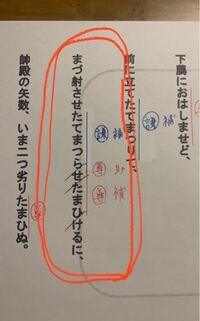 下﨟におはしませど、
護 補
前に立てたてまつりて、
謙 補
尊 助
尊 補
まづ射させたてまつらせたまひけるに、
帥殿の矢数、いま二つ劣りたまひぬ。